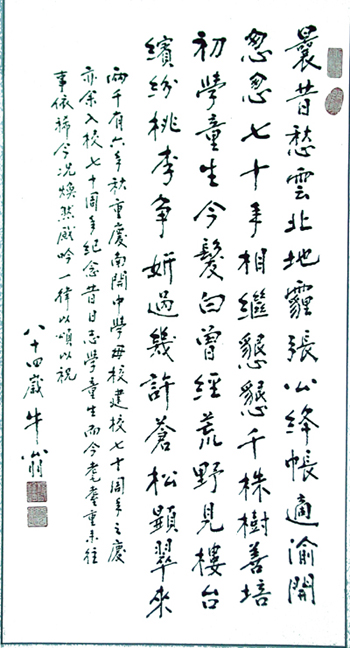 曩昔愁雲北地霾張公絳帳適渝開
忽忽七十年相繼懇懇千株樹善培
初學童生今髮白曾經荒野見樓台
繽紛桃李爭妍過幾許蒼松顯翠來
兩千有六年秋重慶南開中學母校建校七十周年之慶
亦余入校七十周年紀念昔日志學童生而今耄耋重来往
事依稀今況煥然感吟一律以頌以祝
八十四歲牛翁